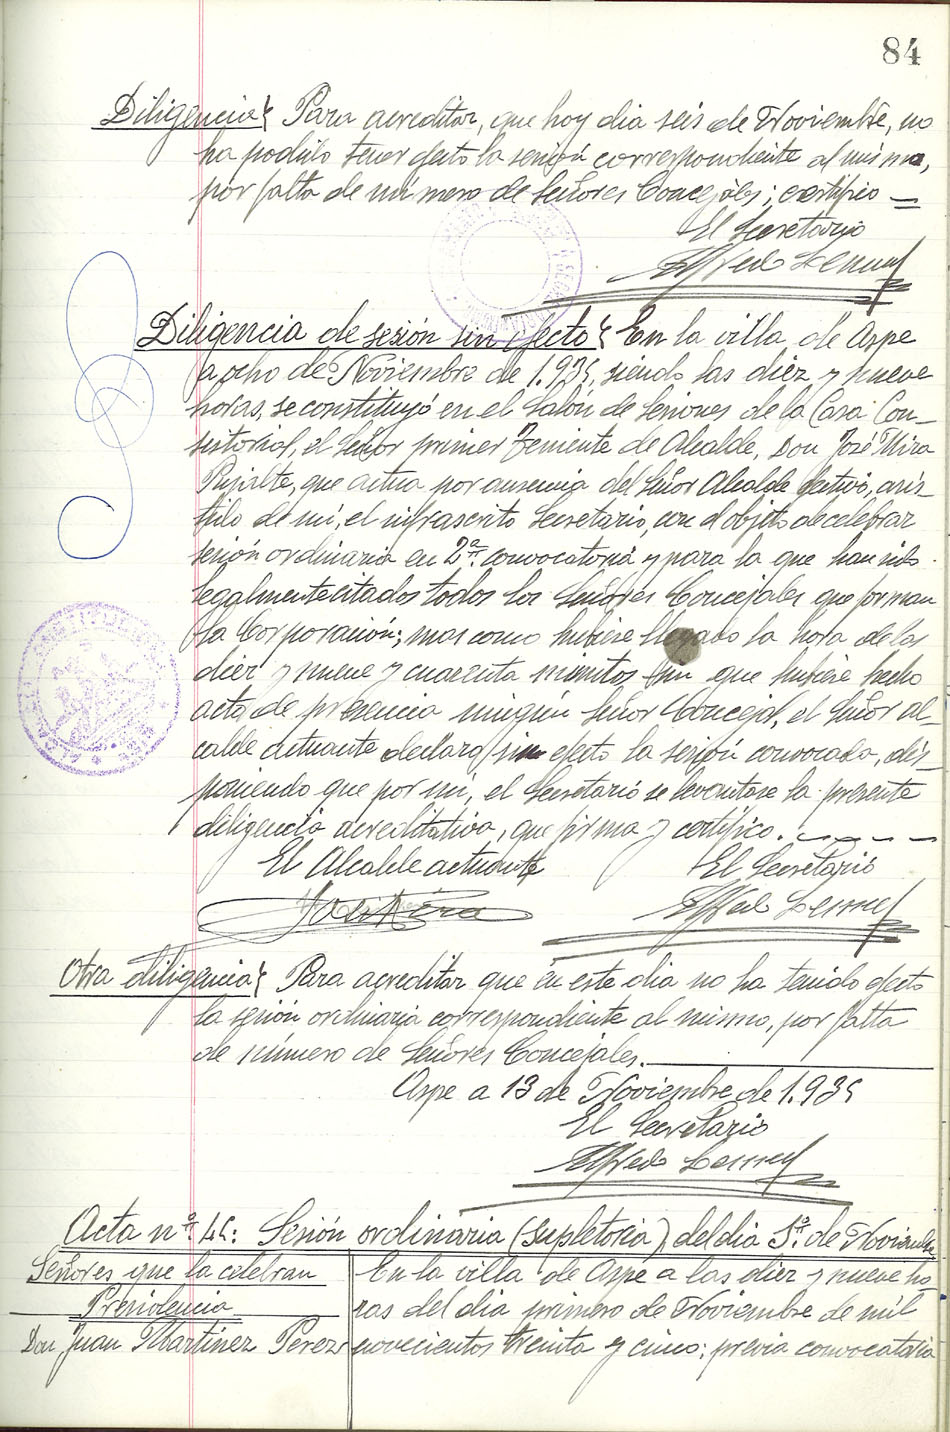 84
Diligencia} Para acreditar, que hoy dia seis de Noviembre, no
ha podido tener efecto la sesión correspondiente al mismo,
por falta de numero de Señores Concejales; certifico
El Secretario
Diligencia de sesión sin efecto} En la villa de Aspe
a ocho de Noviembre de 1.935, siendo las diez y nueve
horas, se constituyó en el Salón de Sesiones de la Casa Con-
sistorial, el Señor primer Teniente de Alcalde, Don José Mira
que actua por ausencia del Señor Alcalde efectivo, asis-
tido de mi, el infrascrito Secretario, con el objeto de celebrar
sesión ordinaria en 2ª convocatoria y para la que han sido
legalmente citados todos los Señores Concejales que forman
la Corporación; mas como hubiese llegado la hora de las
diez y nueve y cuarenta minutos sin que hubiese hecho
acto de presencia ningún Señor Concejal, el Señor al-
calde actuante declaró sin efecto la sesión convocada, dis-
poniendo que por mi, el Secretario se levantase la presente
diligencia acreditativa, que firma y certifico.
El Alcalde actuante El Secretario
José Mira
Otra diligencia} Para acreditar que en este dia no ha tenido efecto
la sesión ordinaria correspondiente al mismo, por falta
de número de Señores Concejales.
Aspe a 13 de Noviembre de 1.935
El Secretario
Acta nº 45: Sesión ordinaria (supletoria) del dia 1º de Noviembre
Señores que la celebran
Presidencia
Don Juan Martinez Perez
En la villa de Aspe a las diez y nueve ho-
ras del dia primero de Noviembre de mil
novecientos treinta y cinco; previa convocatoria